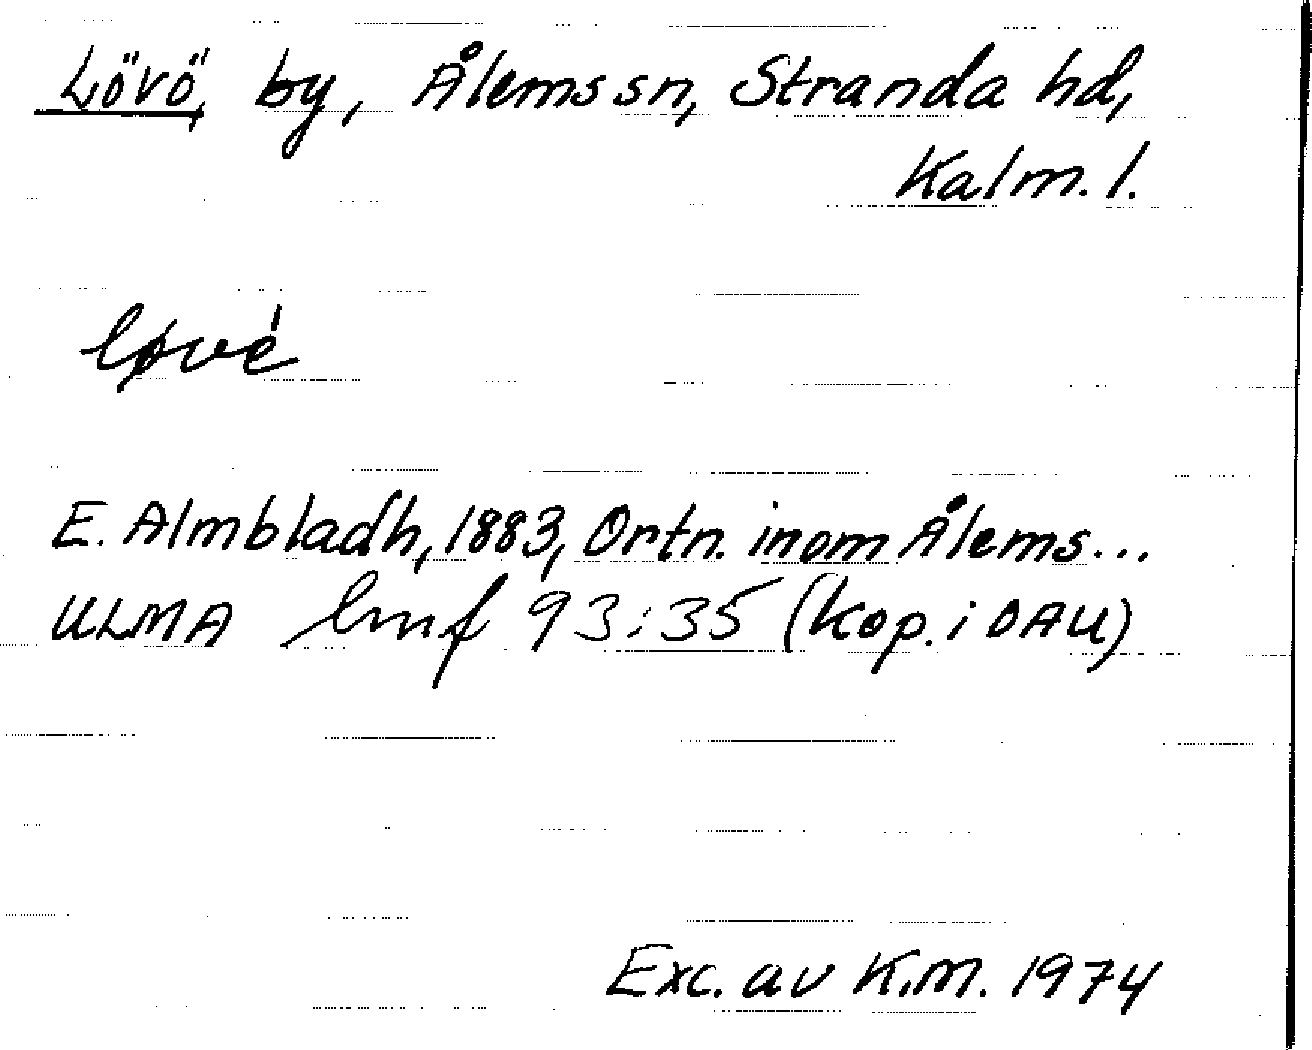 Lövö, by, Ålems sn, Stranda hd,
Kalm. l.
løvé
E. Almbladh, 1883, Ortn. inom Ålems...
ULMA lmf 93:35 (kop. i DAU)
Exc. av K.M. 1974